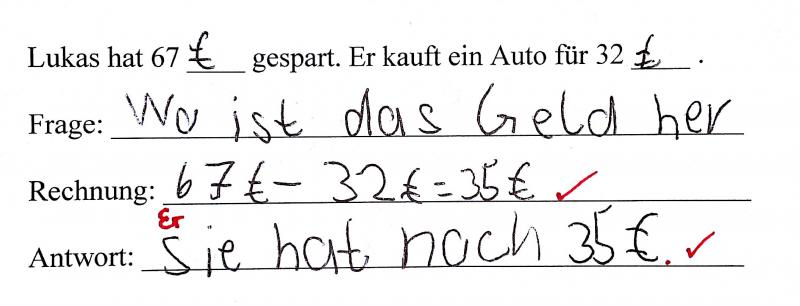 Lukas hat 67 € gespart. Er kauft ein Auto für 32 €.
Frage: Wo ist das Geld her
Rechnung: 67€ - 32€ = 35€ ✓
Er
Antwort: Sie hat noch 35€. ✓